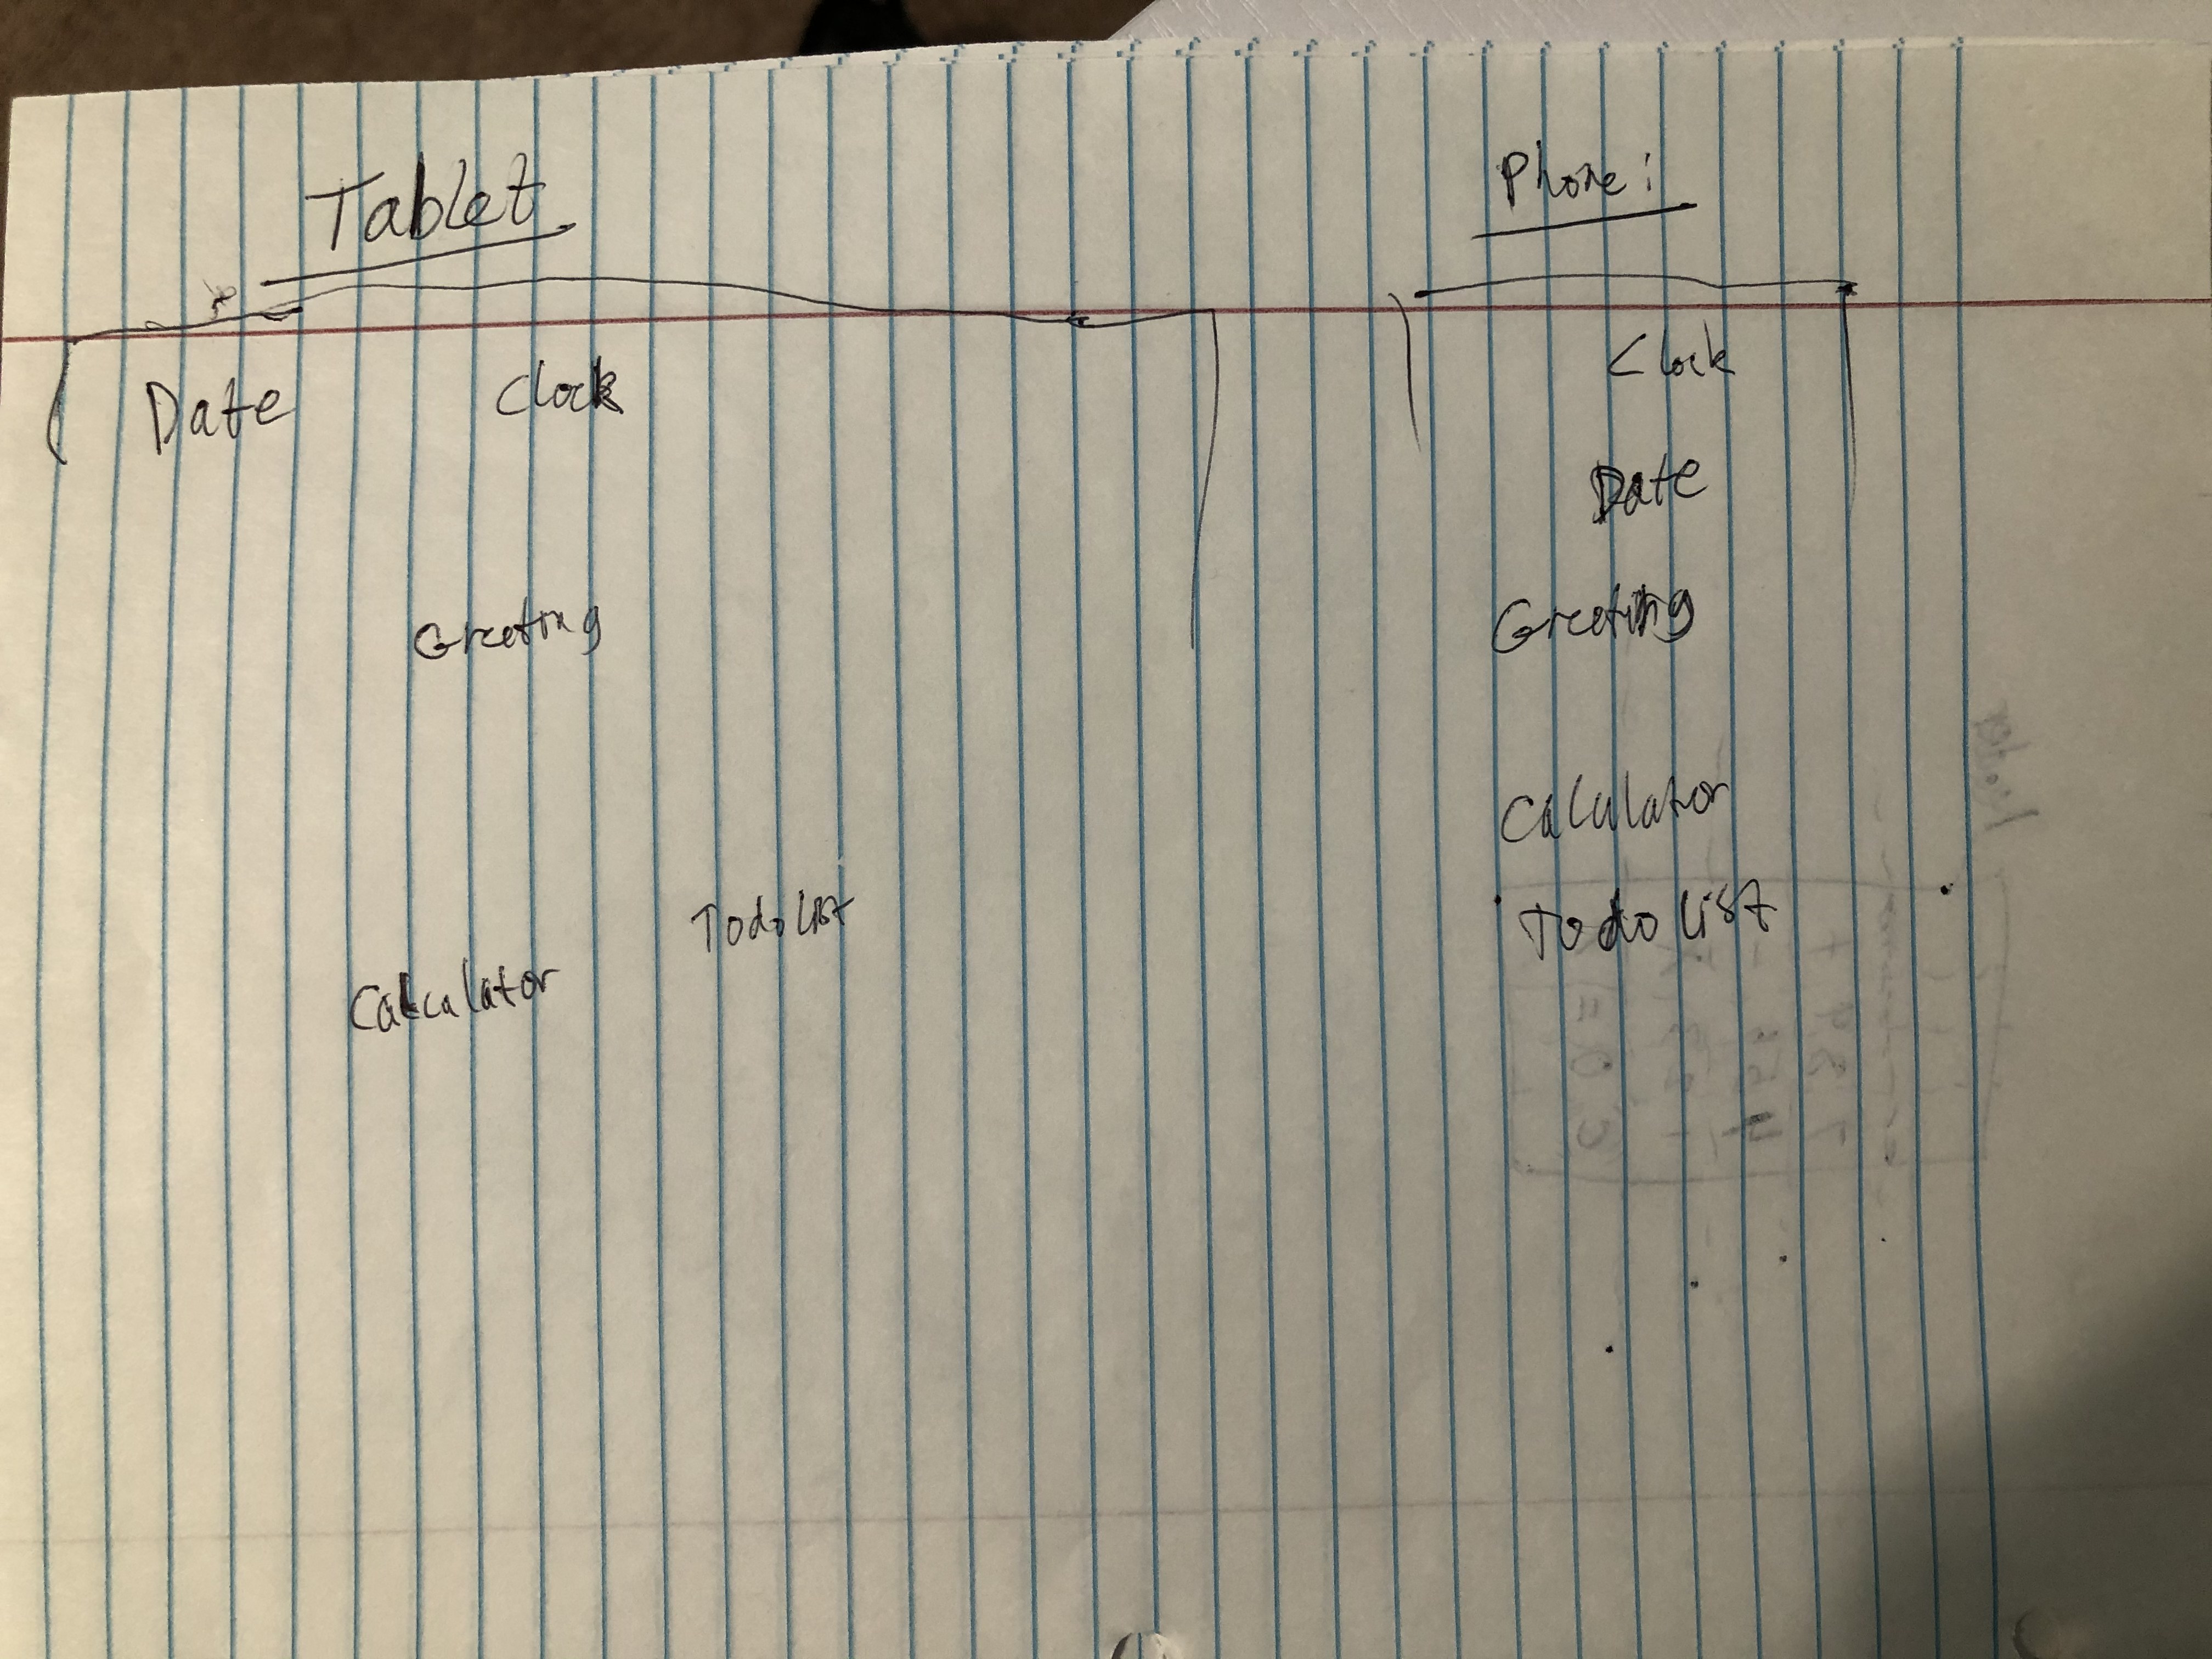 Tablet
Date Clock
Greeting
Todo list
Calculator
Phone:
Clock
Date
Greeting
Calculator
Todo list